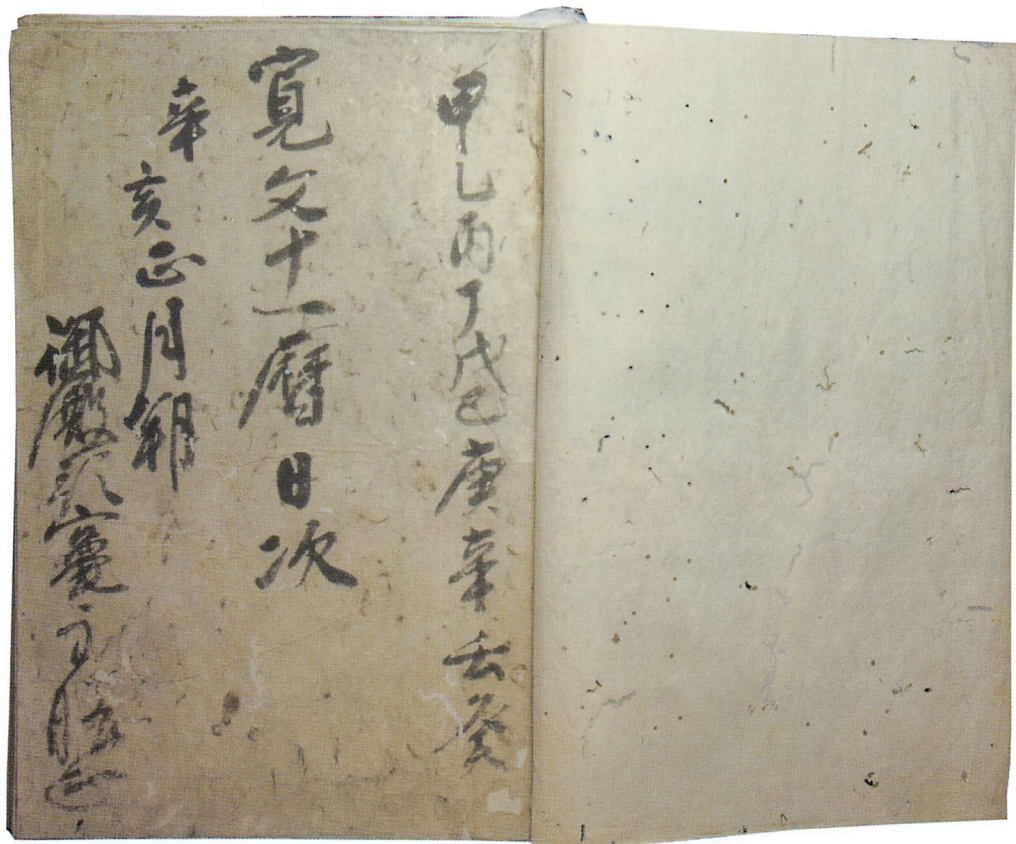 甲乙丙丁戊己庚辛壬癸
寛文十一暦日次
辛亥正月朔
御殿